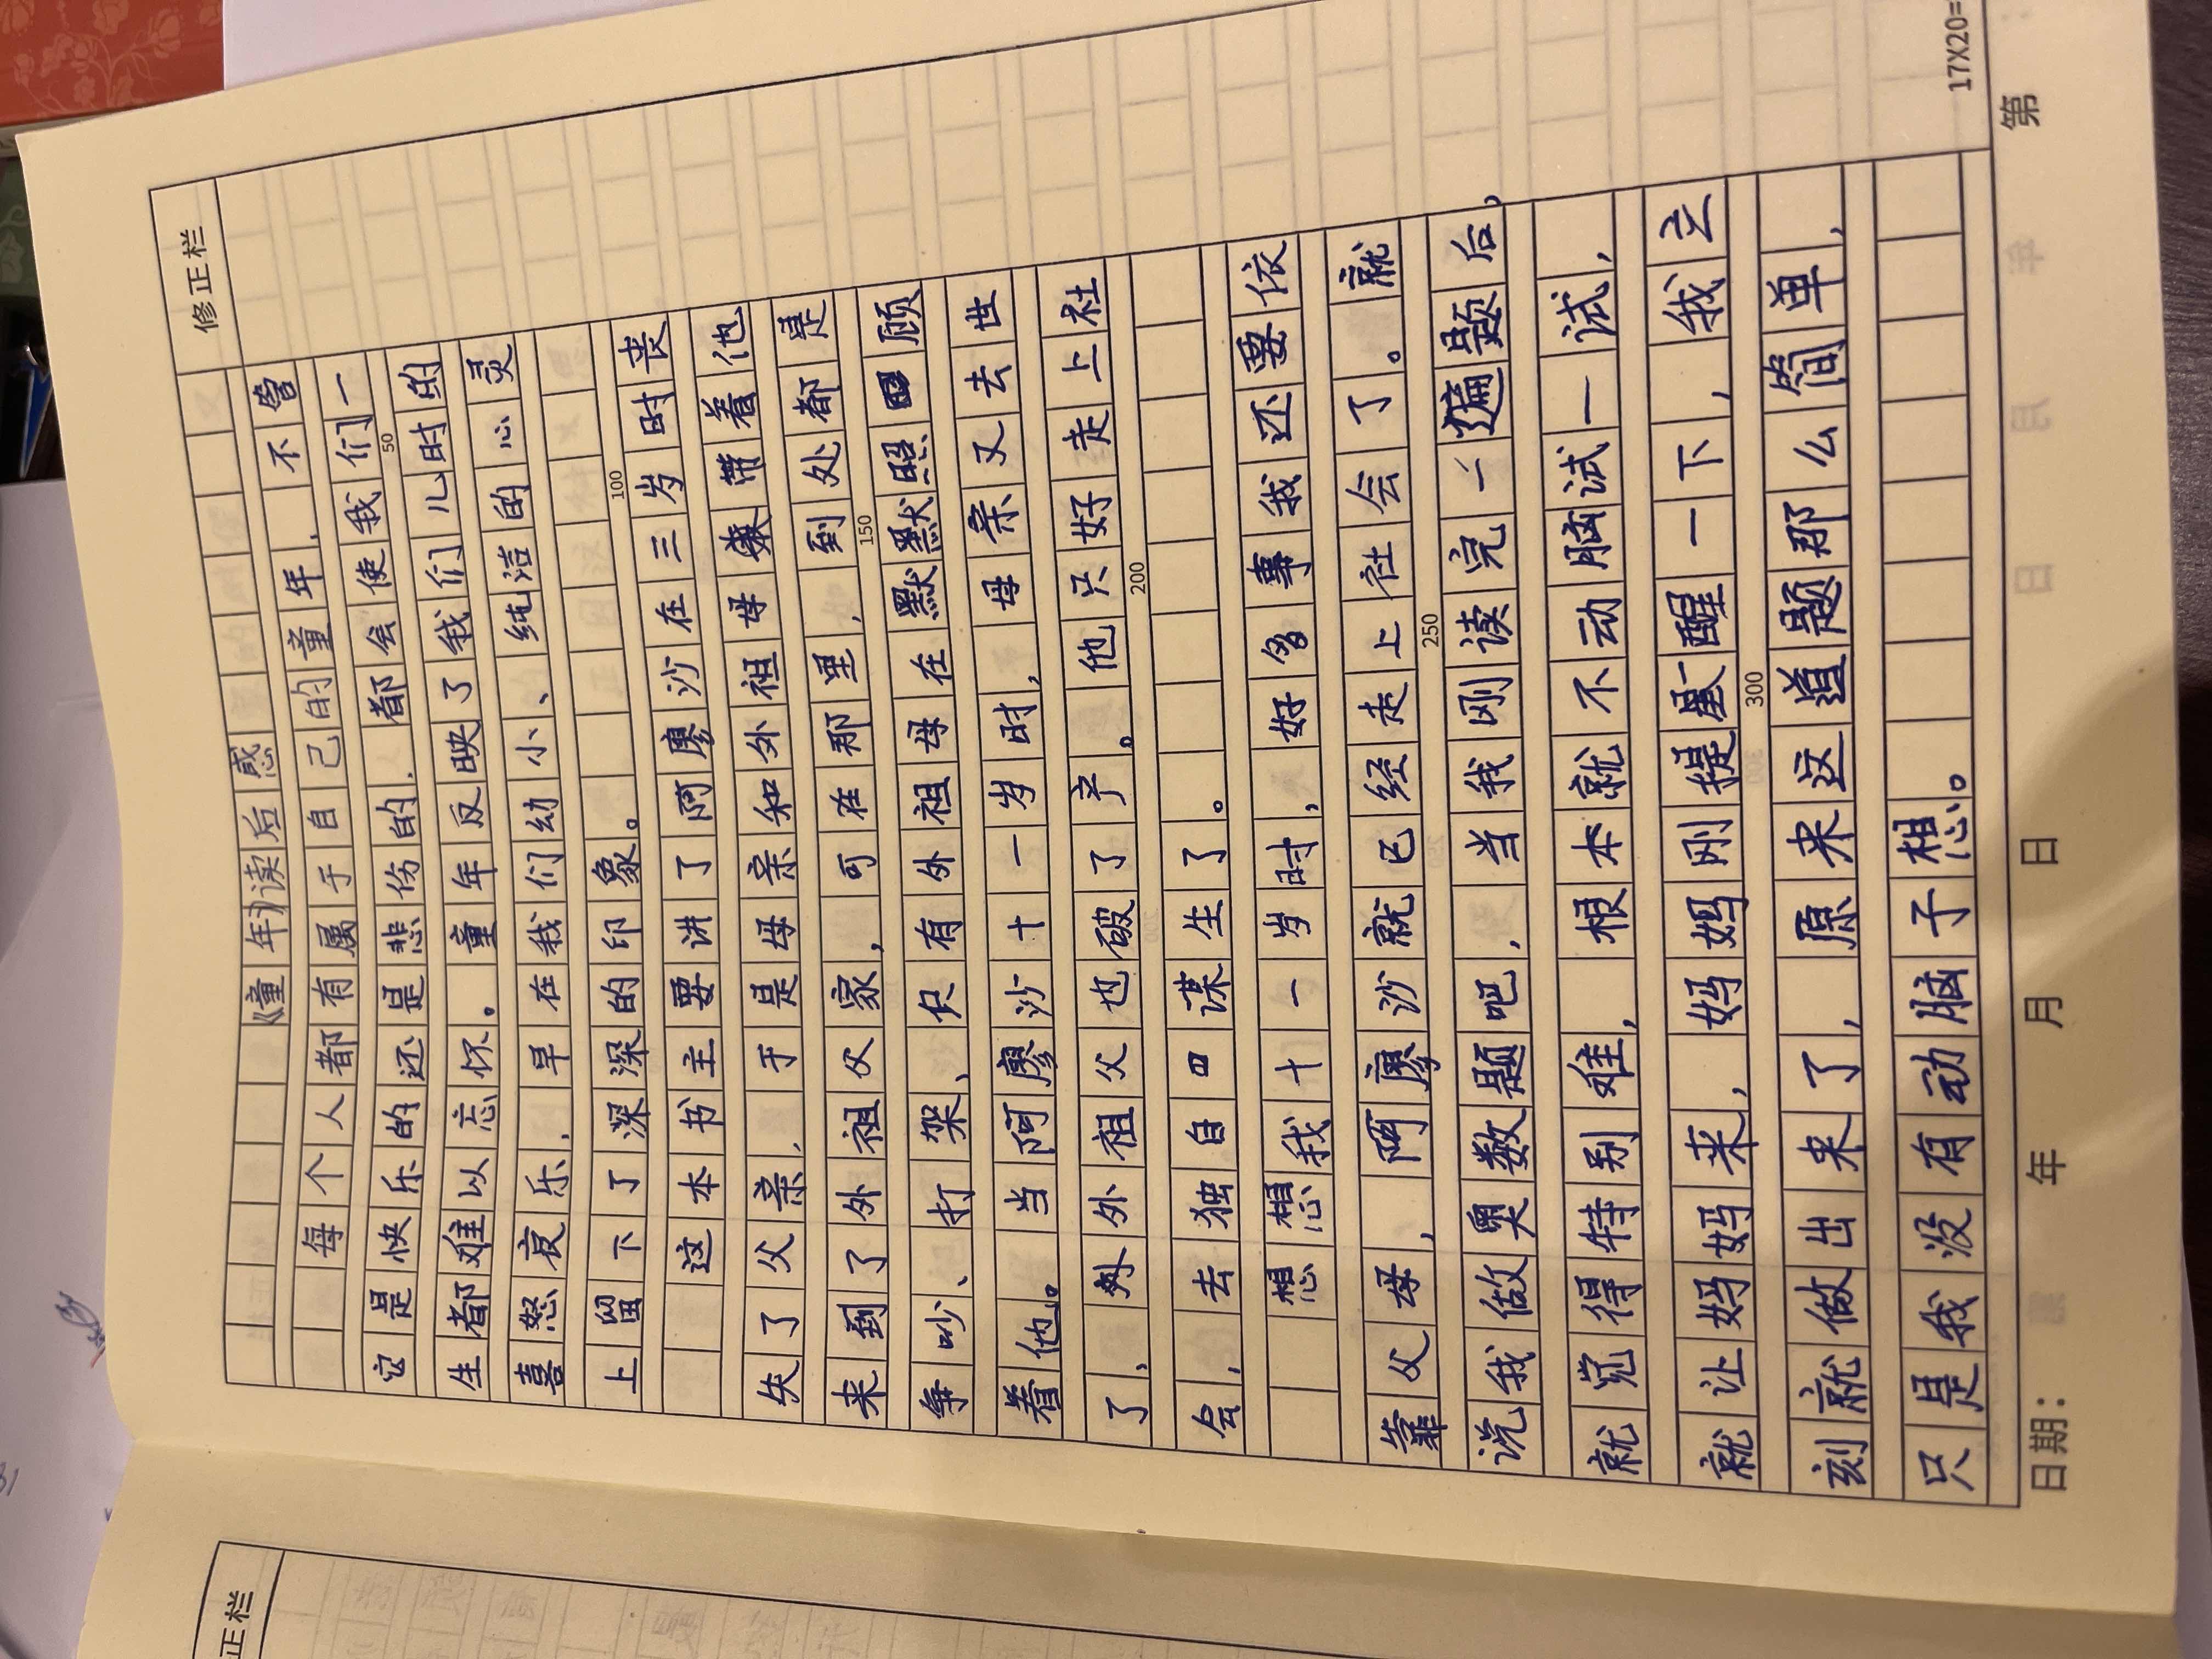 修正栏
《童年》读后感
每个人都有属于自己的童年，不管
它是快乐的还是悲伤的，都会使我们一
生都难以忘怀。童年反映了我们儿时的
喜怒哀乐，早在我们幼小、纯洁的心灵
上留下了深深的印象。
这本书主要讲了阿廖沙在三岁时丧
失了父亲，于是母亲和外祖母带着他
来到了外祖父家，可在那里，到处都是
争吵、打架、只有外祖母在默默照顾
着他。当阿廖沙十一岁时，母亲又去世
了，外祖父也破了产。他只好走上社
会，去独自谋生了。
想想我十一岁时，好多事我还要依
靠父母，阿廖沙就已经走上社会了。就
说我做奥数题吧，当我刚读完一遍题后，
就觉得特别难，根本就不动脑试一试，
就让妈妈来，妈妈刚提醒一下，我立
刻就做出来了，原来这道题那么简单，
只是我没有动脑子想。
50
100
150
200
250
300
17X20=
日期： 年 月 日
第
正栏